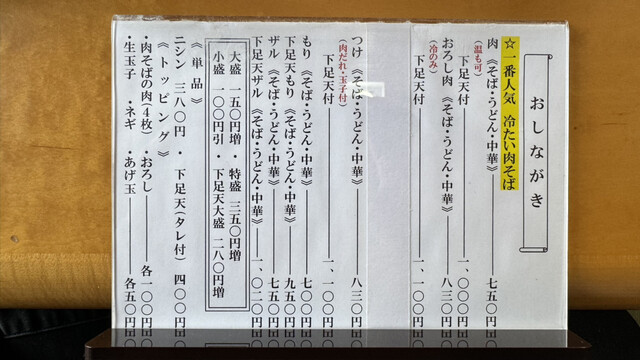 おしながき
☆一番人気 冷たい肉そば
肉《そば・うどん・中華》 七五〇円
(温も可)
下足天付 一、〇〇〇円
おろし肉《そば・うどん・中華》 八三〇円
(冷のみ)
下足天付 一、一〇〇円
つけ《そば・うどん・中華》 八三〇円
(肉だれ・玉子付)
下足天付 一、一〇〇円
もり《そば・うどん・中華》 七〇〇円
下足天もり《そば・うどん・中華》 九五〇円
ザル《そば・うどん・中華》 七五〇円
下足天ザル《そば・うどん・中華》 一、〇二〇円
大盛 一五〇円増・特盛 三五〇円増
小盛 一〇〇円引・下足天大盛 二八〇円増
《単品》
ニシン 三八〇円・下足天(タレ付) 四〇〇円
《トッピング》
・肉そばの肉(4枚)・おろし 各一〇〇円
・生玉子・ネギ・あげ玉 各五〇円